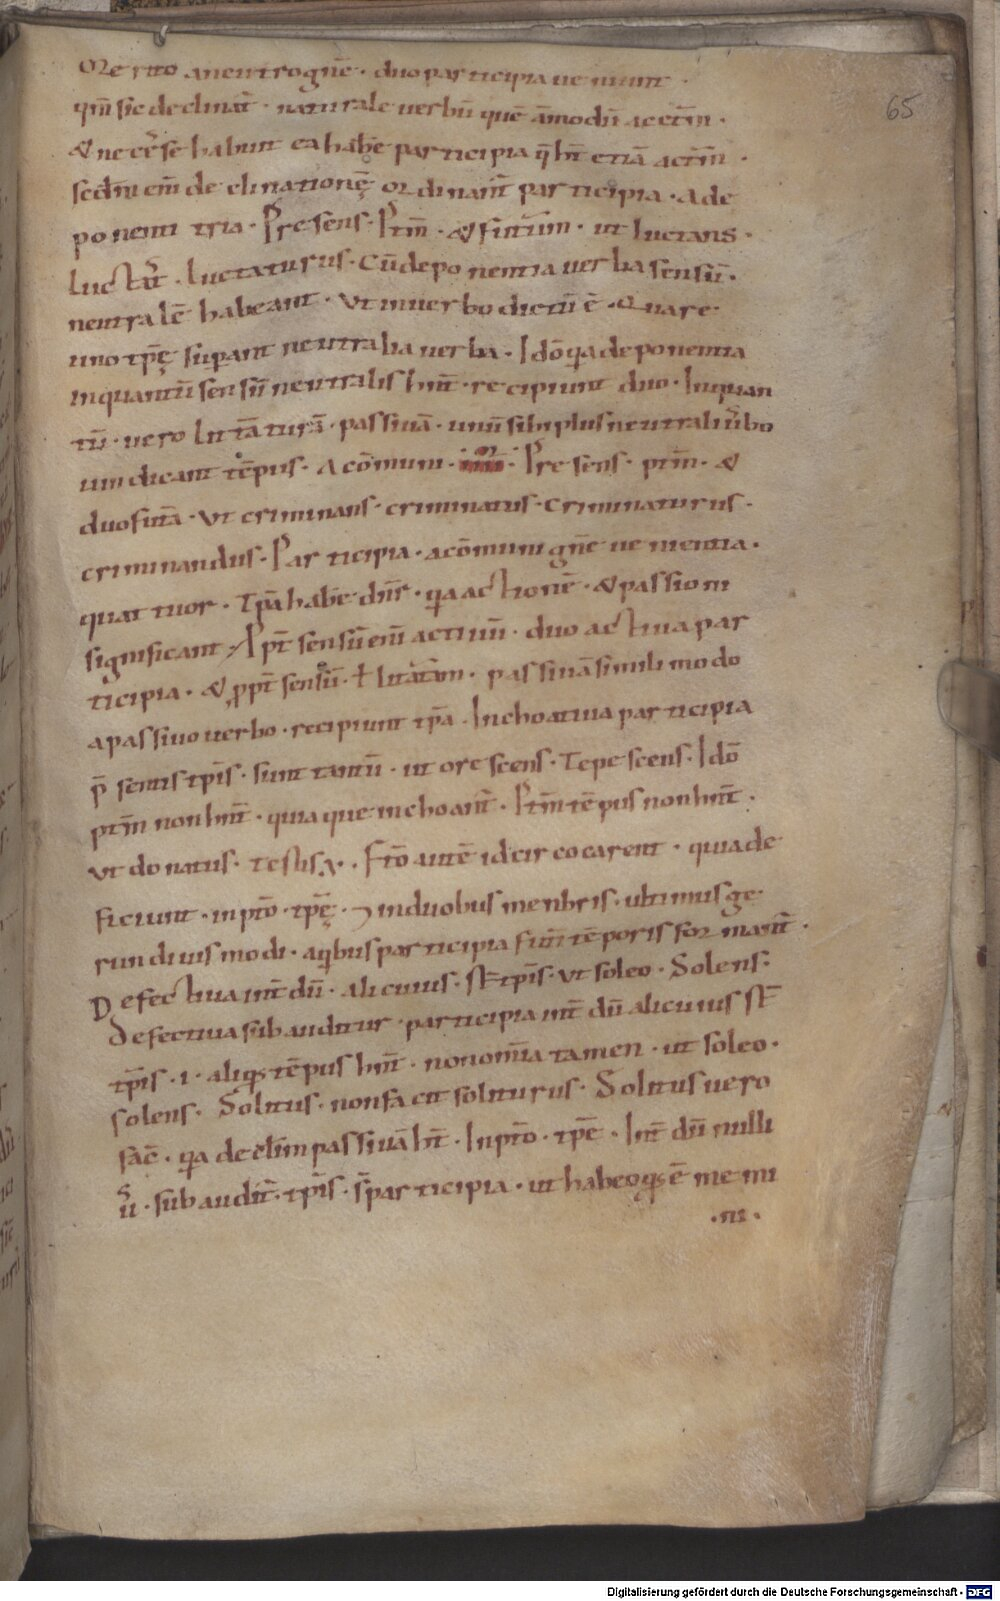 Merito aneutrogn̄e · duo participia ueniunt ·
qm̄ sic declinat̄ · naturale uerbū quē ām̄odū acct̄m ·
& necēse habunt ea habe participia q̄ hn̄t etiā act̄m ·
scdm̄ em̄ declinationȩ̄ ordinant̄ participia · Ade
ponenti tria · Presens · Ptm̄ · & futūm · ut luctans ·
luctat̄ · luctaturus · cū deponentia uerba sensū ·
neutralē habeant · Vt inuerbo dictū ē · Quare
uno tp̄ȩ supant neutralia uerba · Idō q̄a deponentia
inquantū sensū neutralis hn̄t · recipiunt duo · Inquan
tū · uero litāturā · passiuā · unū sibi plus neutrali ūbo
uindicant tēpus · Acōmuni · iiii · Presens · ptm̄ · &
duo futā · Vt criminans · criminatus · Criminaturus ·
criminandus · Participia · acōmuni gn̄e uenientia ·
quattuor · tp̄a habe dn̄r · q̄a actionē · & passioni
significant · Ppt̄ sensū enī actiuū · duo actiua par
ticipia · & ppt̄ sensū · ł litāt̄am · passiuā simili modo
apassiuo uerbo · recipiunt tp̄a · Inchoatiua participia
p̄sentis tp̄is · sunt tantū · ut orescens · Tepescens · Idō
ptm̄ non hn̄t · quia que inchoant̄ · Ptm̄ tēpus non hn̄t ·
Vt donatus · testis · Ftō autē idcirco carent · quia de
ficiunt · in ptō · tp̄ȩ · induobus menbris · ultimus ge
rundiuis modi · aq̄bus participia futī tēporis formant̄ ·
Defectiua int̄dū · alicuius · st̄ tp̄is · Vt soleo · Solens ·
Defectiua subauditur participia int̄dū alicuius st̄
tp̄is · i · aliq̄s tēpus hn̄t · non om̄ia tamen · ut soleo ·
solens · Solitus · non facit soliturus · Solitus uero
facē · q̄a declīm passiuā hn̄t · Inptō · tp̄e · Int̄dū nulli
ū · subaudit̄ · tp̄is · s̄ participia · ut habeo q̄s ē memi
· ni ·
65
Digitalisierung gefördert durch die Deutsche Forschungsgemeinschaft - DFG